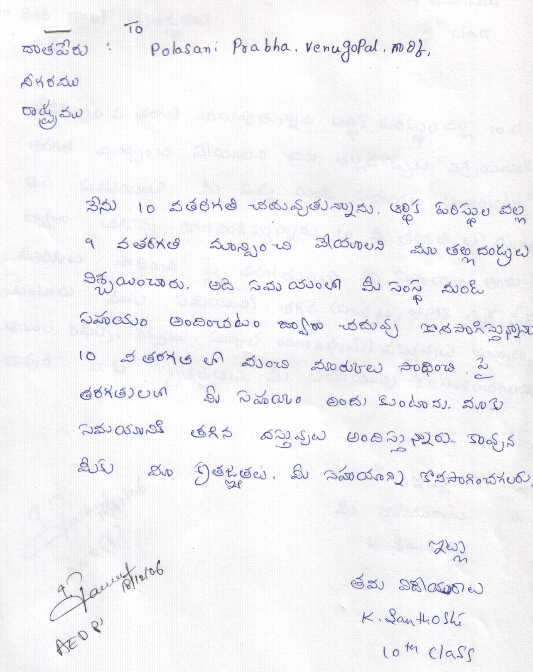 To
దాతపేరు : Polasani Prabha. Venugopal. గారికి,
నగరము
రాష్ట్రము
నేను 10 వతరగతి చదువుతున్నాను. ఆర్థిక పరిస్థుల వల్ల
9 వతరగతి మాన్పించి వేయాలని మా తల్లిదండ్రులు
నిశ్చయించారు. అది సమయంలో మీ సంస్థ నుండి
సహాయం అందించటం ద్వారా చదువు కొనసాగిస్తున్నాను
10 వ తరగతి లో మంచి మార్కులు సాధించి. పై
తరగతులలో మీ సహాయం అందుకుంటాను. మాకు
సమయానికి తగిన వస్తువులు అందిస్తున్నారు. కావున
మీకు మా కృతజ్ఞతలు. మీ సహాయాన్ని కొనసాగించగలరు.
ఇట్లు
తమ విధేయురాలు
K. Santhoshi
10th class
18/12/06
AEDP